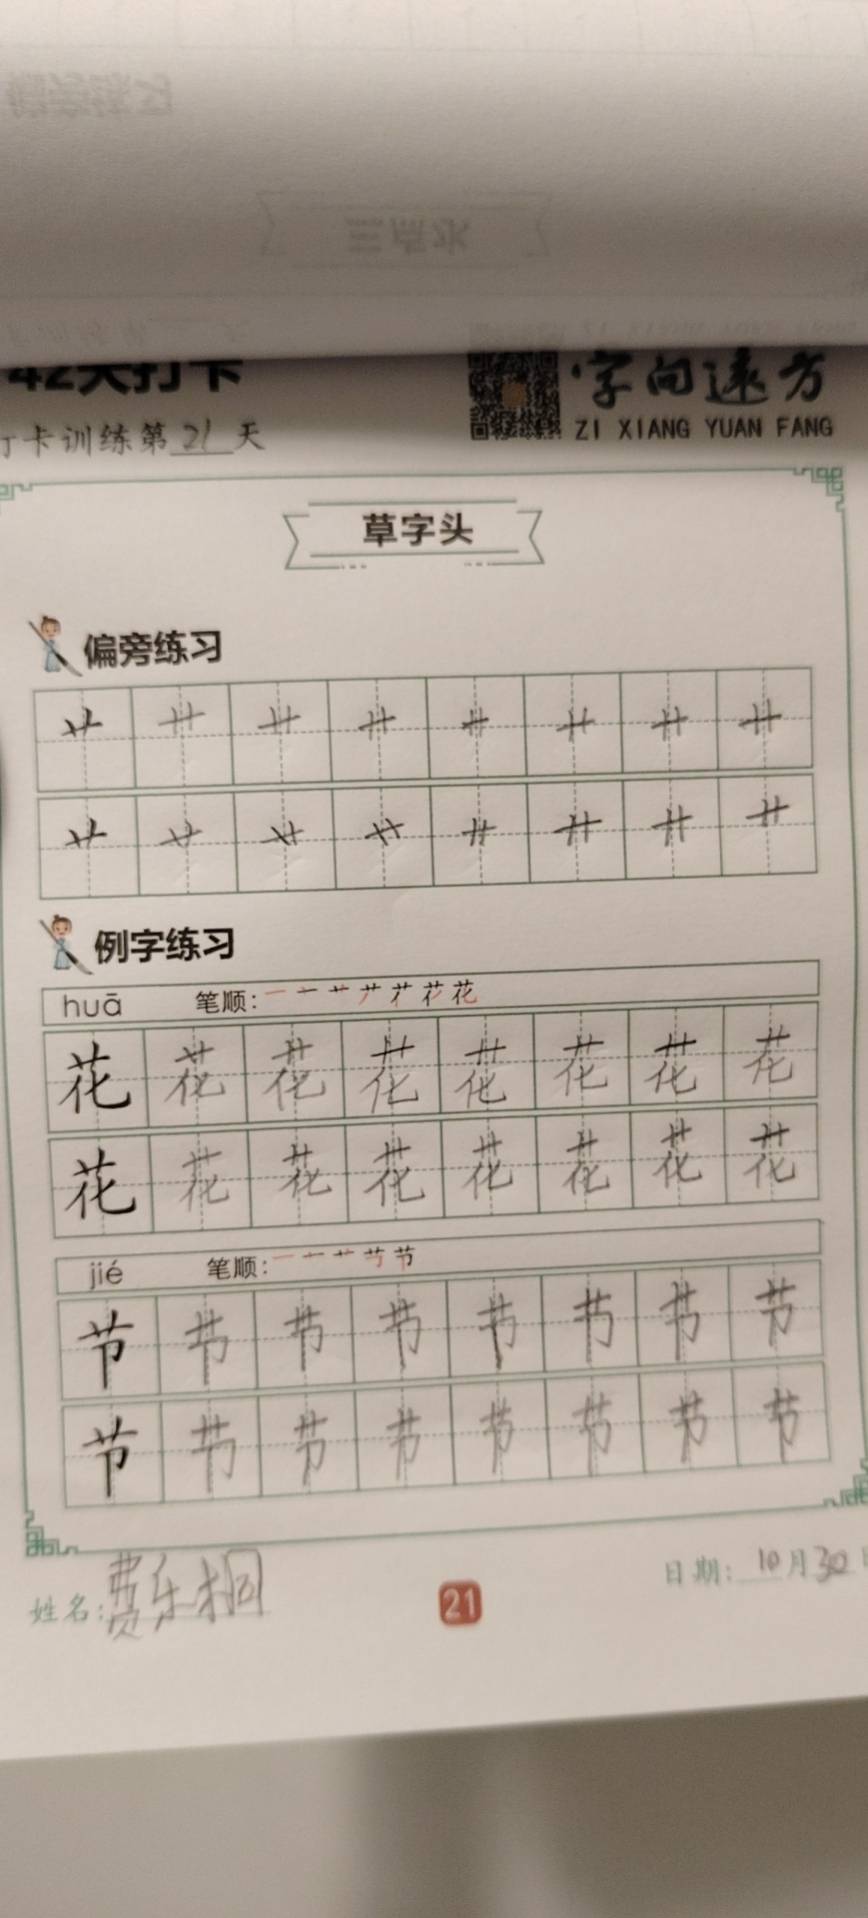 42天打卡
字向远方
打卡训练第21天
ZI XIANG YUAN FANG
草字头
偏旁练习
艹艹艹艹艹艹艹艹
艹艹艹艹艹艹艹艹
例字练习
huā 笔顺:
花花花花花花花花
花花花花花花花花
jié 笔顺:
节节节节节节节节
节节节节节节节节
姓名:费乐桐
21
日期:10月30日